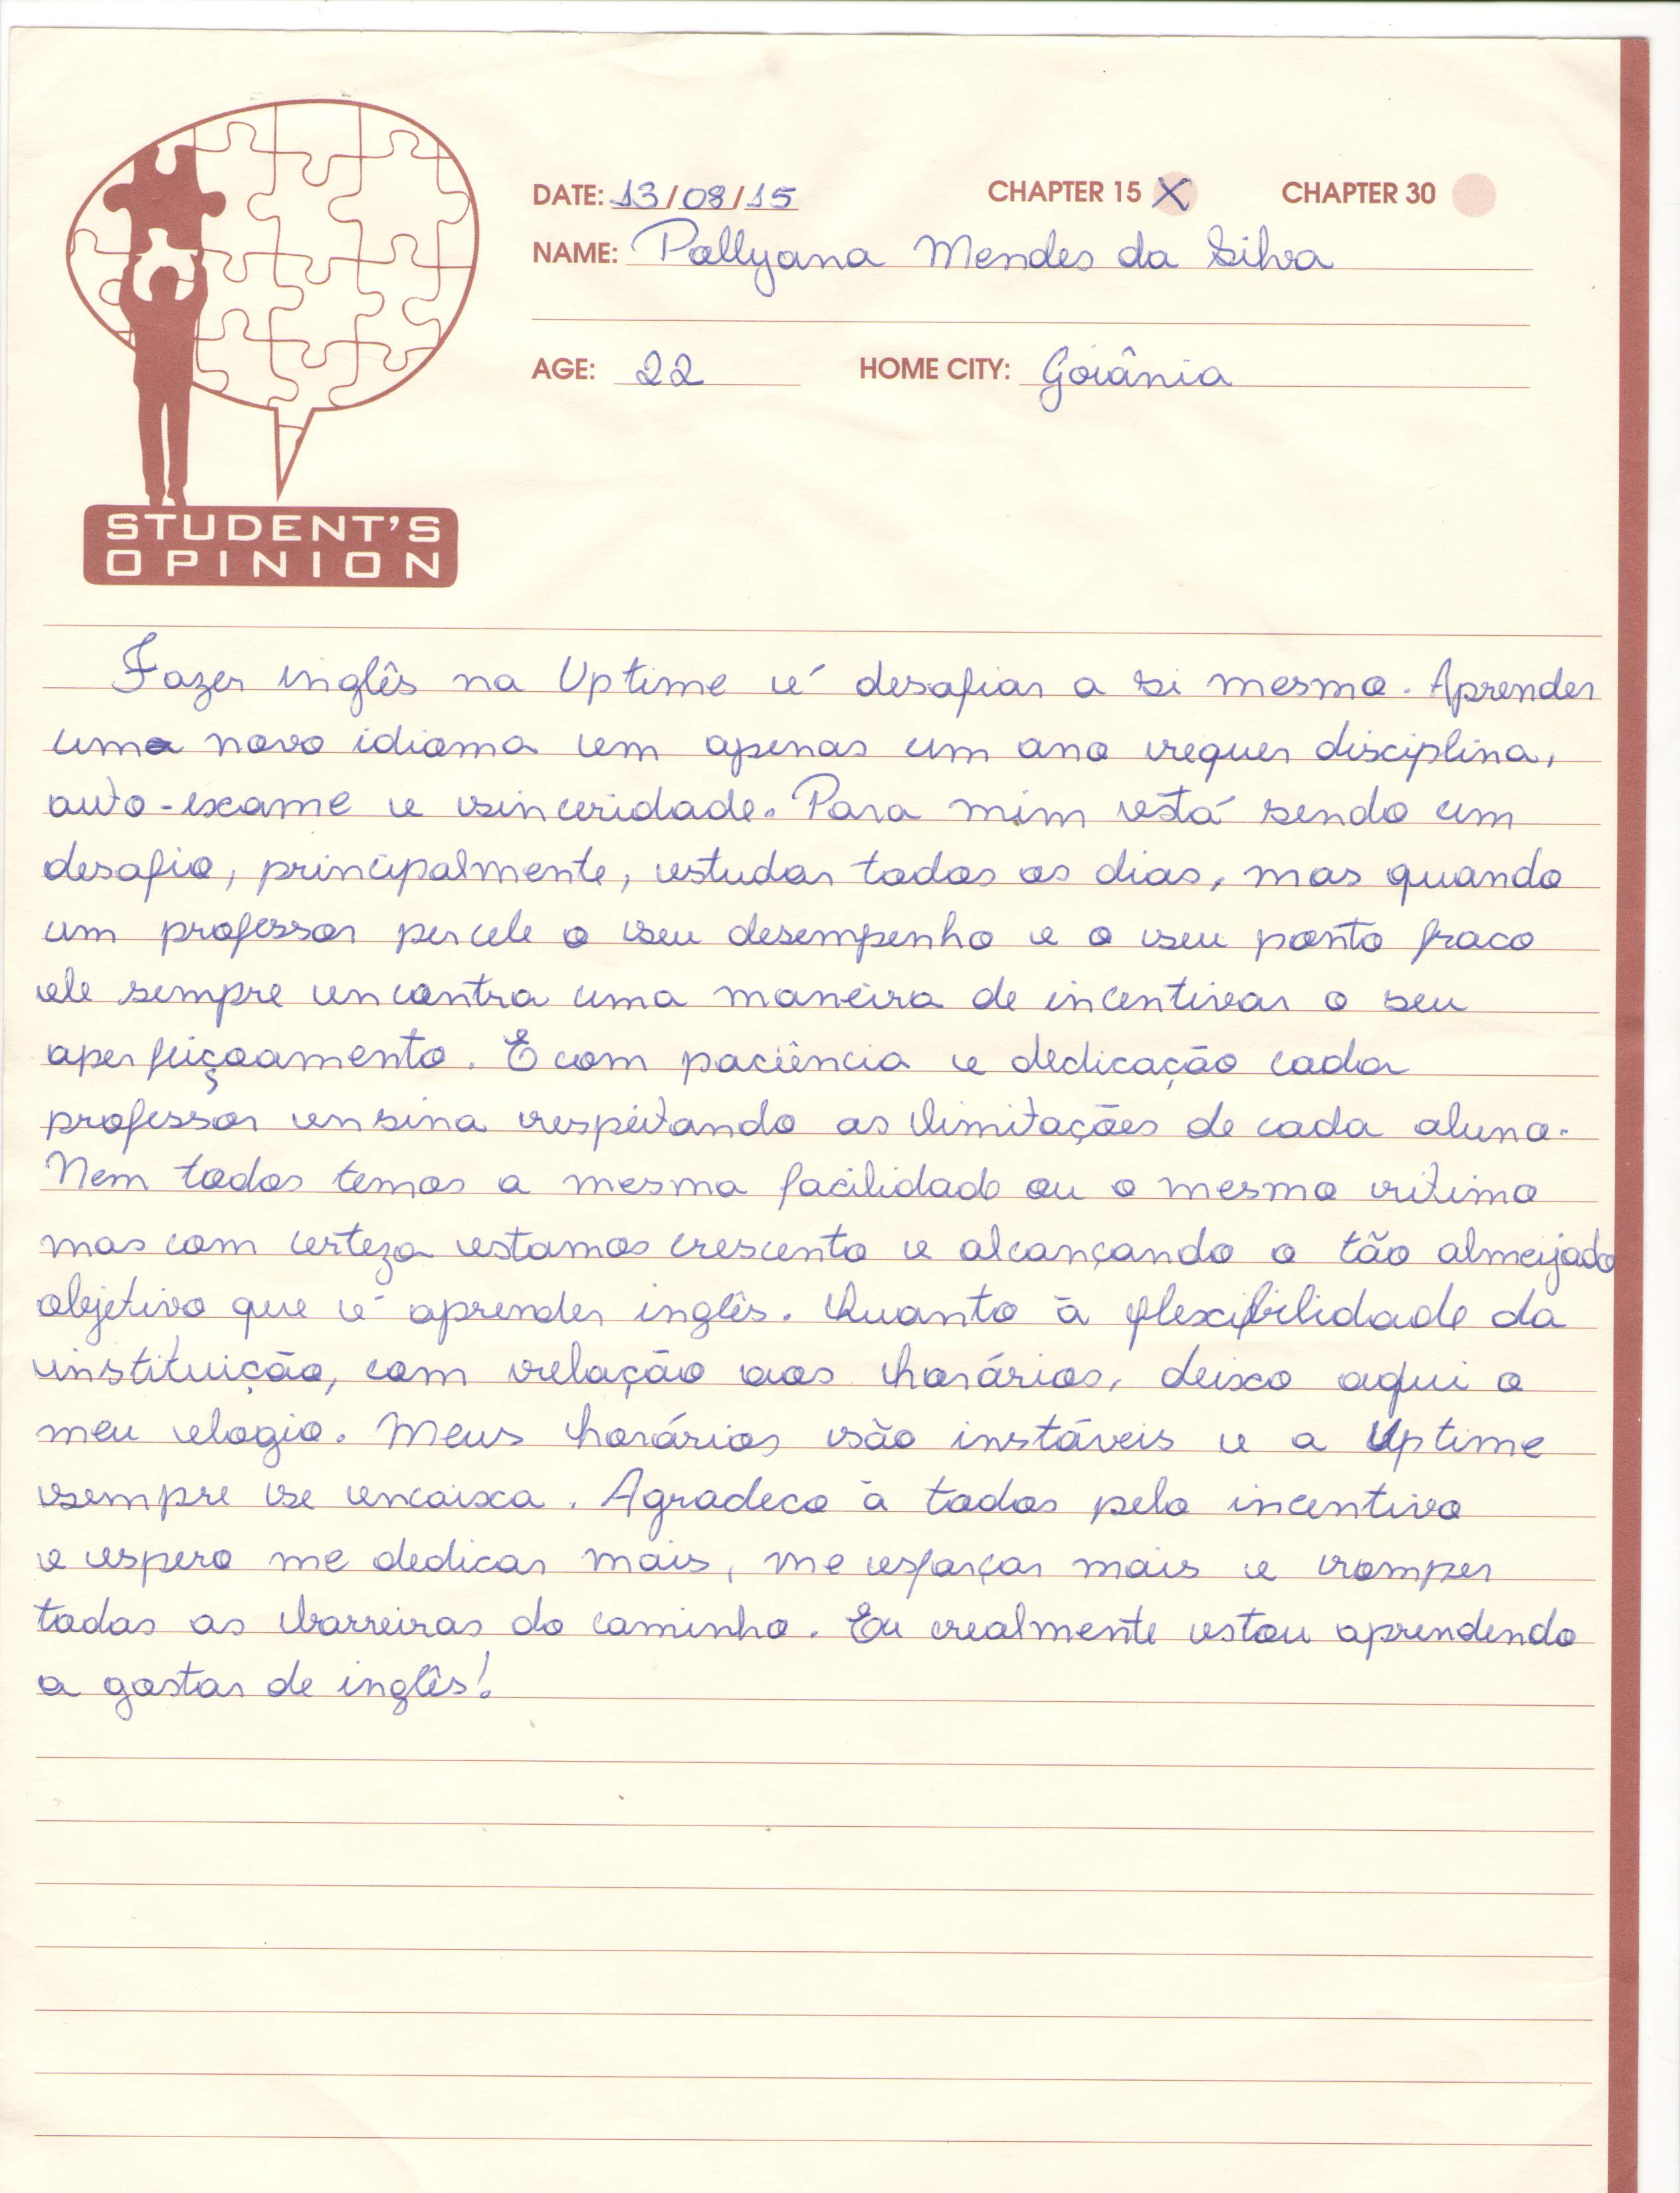 DATE: 13/08/15 CHAPTER 15 X CHAPTER 30
NAME: Pollyana Mendes da Silva
AGE: 22 HOME CITY: Goiânia
STUDENT'S
OPINION
Fazer inglês na Uptime é desafiar a si mesmo. Aprender
um novo idioma em apenas um ano requer disciplina,
auto-exame e sinceridade. Para mim está sendo um
desafio, principalmente, estudar todos os dias, mas quando
um professor percele o seu desempenho e o seu ponto fraco
ele sempre encontra uma maneira de incentivar o seu
aperfeiçoamento. E com paciência e dedicação cada
professor ensina respeitando as limitações de cada aluno.
Nem todos temos a mesma facilidade ou o mesmo ritimo
mas com certeza estamos crescento e alcançando o tão almeijado
objetivo que é aprender inglês. Quanto à flexibilidade da
instituição, com relação aos horários, deixo aqui o
meu elogio. Meus horários são instáveis e a Uptime
sempre se encaixa. Agradeco à todos pelo incentivo
e espero me dedicar mais, me esforçar mais e romper
todas as barreiras do caminho. Eu realmente estou aprendendo
a gostar de inglês!